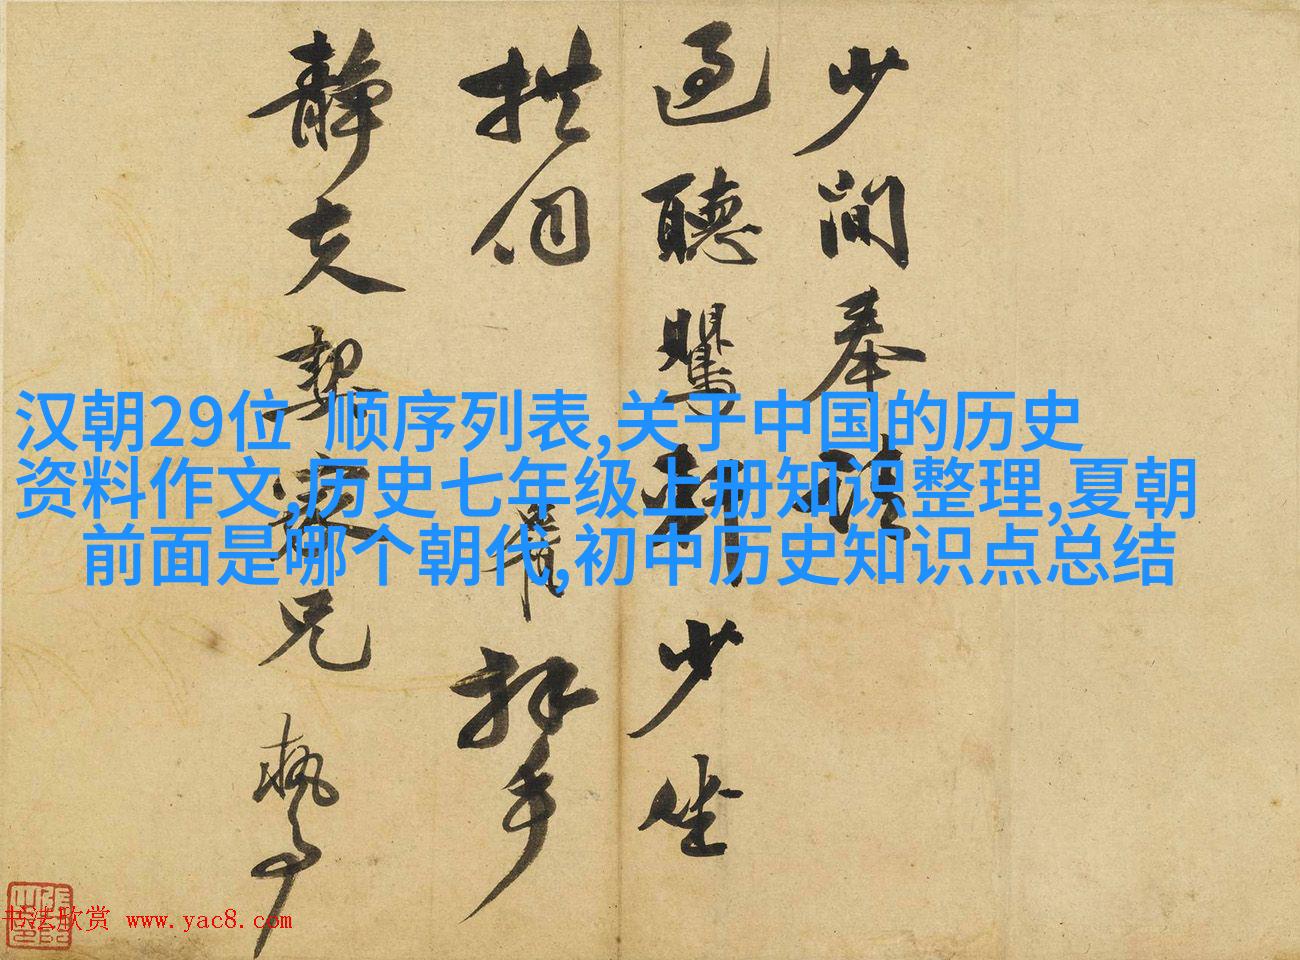 少间奉
过聽鸎
少坐
拱伺
拜手
静夫契
兄
執事
汉朝29位 顺序列表,关于中国的历史
资料作文,历史七年级上册知识整理,夏朝
前面是哪个朝代,初中历史知识点总结
书法欣赏 www.yac8.com